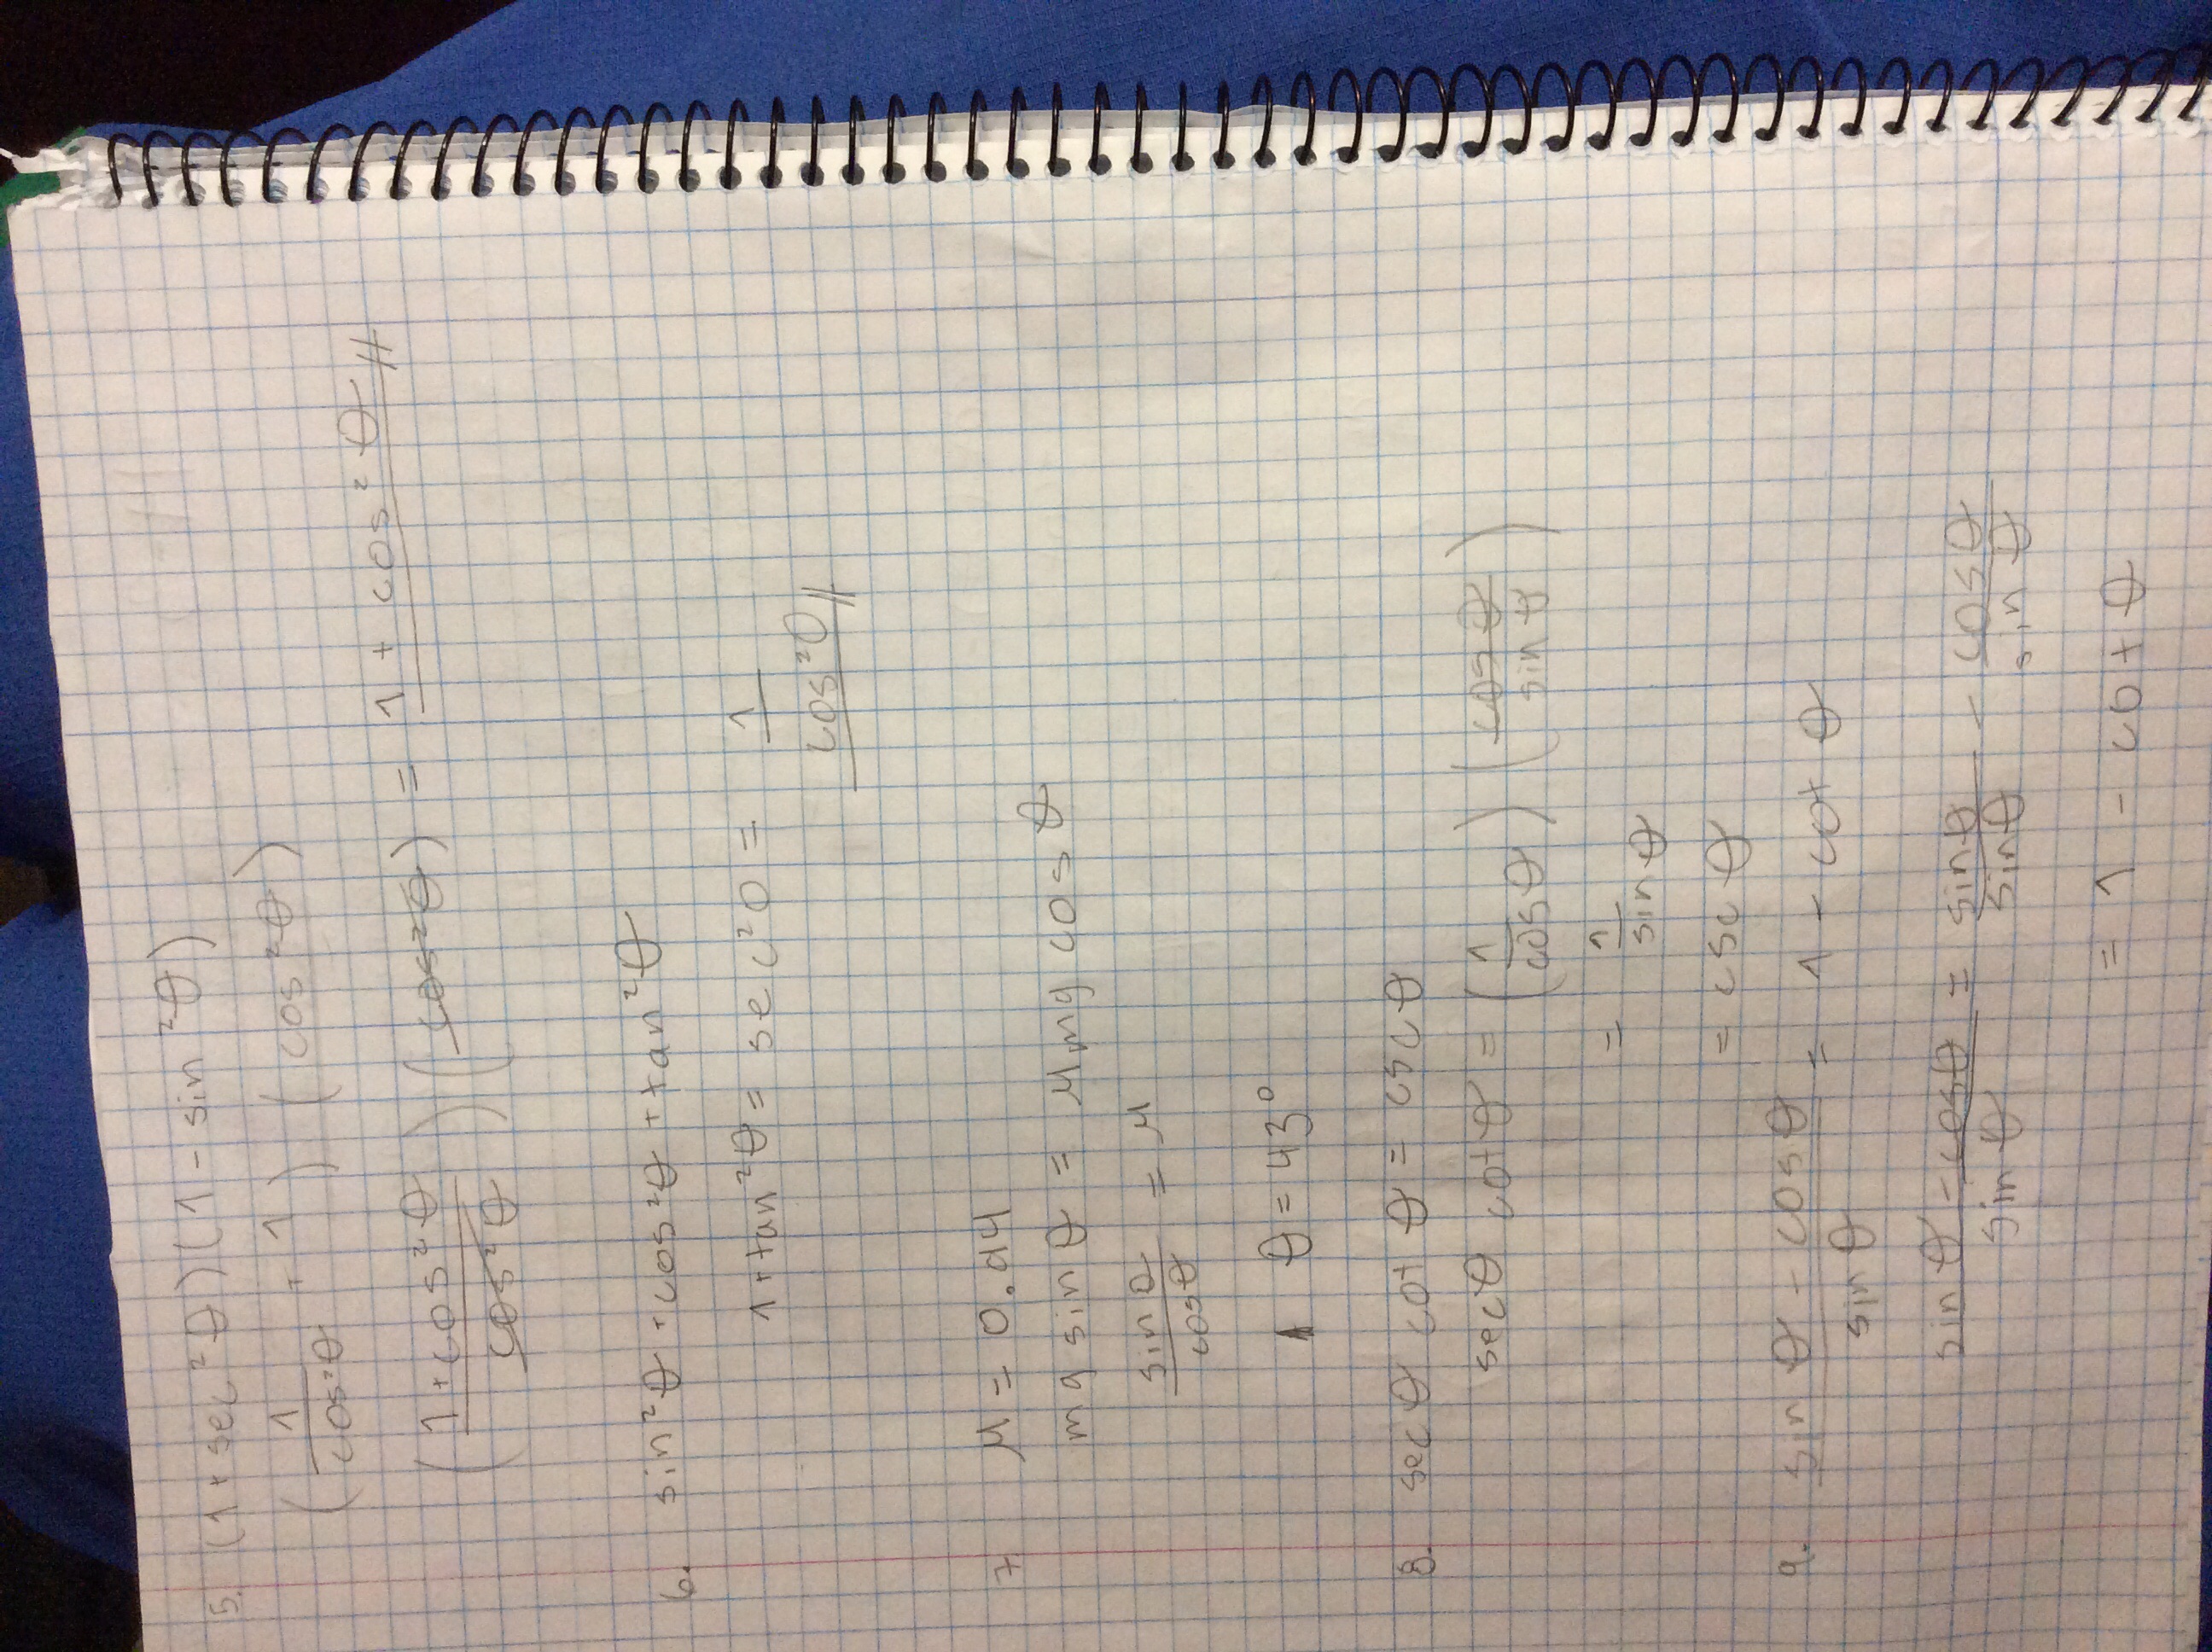 5. (1 + sec²θ)(1 - sin²θ)
(1/cos²θ + 1)(cos²θ)
((1 + cos²θ)/cos²θ)(cos²θ) = 1 + cos²θ //
6. sin²θ + cos²θ + tan²θ
1 + tan²θ = sec²θ = 1/cos²θ //
7 μ = 0.94
mg sin θ = μmg cos θ
sin θ/cos θ = μ
θ = 43°
8. sec θ cot θ = csc θ
sec θ cot θ = (1/cos θ)(cos θ/sin θ)
= 1/sin θ
= csc θ
9. (sin θ - cos θ)/sin θ = 1 - cot θ
(sin θ - cos θ)/sin θ = sin θ/sin θ - cos θ/sin θ
= 1 - cot θ